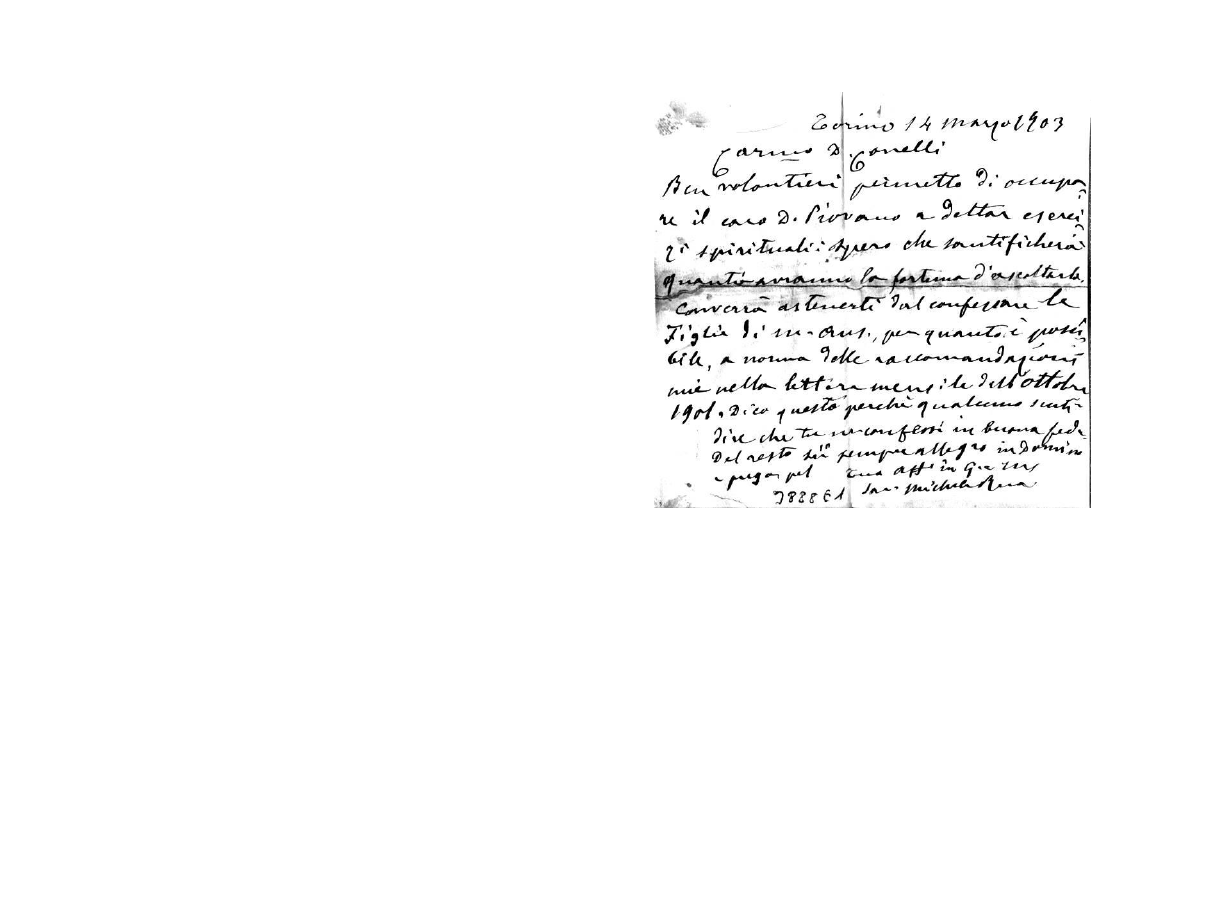 Torino 14 marzo 1903
Car.mo D. Conelli
Ben volontieri permetto di occupa-
re il caro D. Piovano a dettar eserci-
zi spirituali: spero che santificherà
quanti avranno la fortuna d'ascoltarlo.
Converrà astenerti dal confessare le
Figlie di M. Aus., per quanto è possi-
bile, a norma delle raccomandazioni
mie nella lettera mensile dell'ottobre
1901. Dico questo perchè qualcuno sentì
dire che tu ne confessi in buona fede
Del resto sii sempre allegro in Domino
e prega pel tuo aff. in G. e M.
Sac. Michele Rua